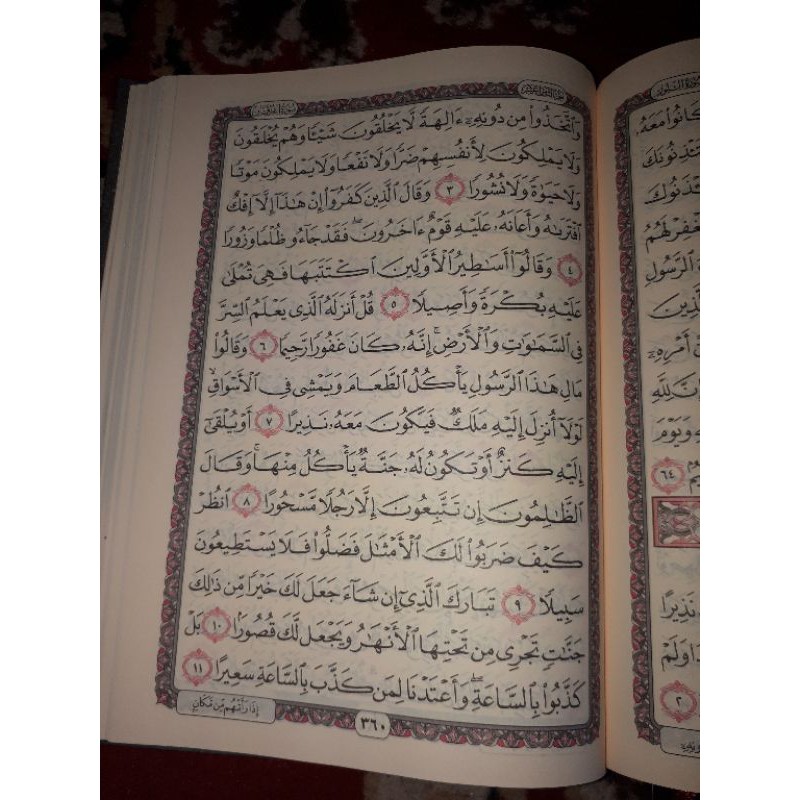 وَٱتَّخَذُوا۟ مِن دُونِهِۦٓ ءَالِهَةً لَّا يَخْلُقُونَ شَيْـًٔا وَهُمْ يُخْلَقُونَ
وَلَا يَمْلِكُونَ لِأَنفُسِهِمْ ضَرًّا وَلَا نَفْعًا وَلَا يَمْلِكُونَ مَوْتًا
وَلَا حَيَوٰةً وَلَا نُشُورًا ٣ وَقَالَ ٱلَّذِينَ كَفَرُوٓا۟ إِنْ هَٰذَآ إِلَّآ إِفْكٌ
ٱفْتَرَىٰهُ وَأَعَانَهُۥ عَلَيْهِ قَوْمٌ ءَاخَرُونَ ۖ فَقَدْ جَآءُو ظُلْمًا وَزُورًا
٤ وَقَالُوٓا۟ أَسَٰطِيرُ ٱلْأَوَّلِينَ ٱكْتَتَبَهَا فَهِىَ تُمْلَىٰ
عَلَيْهِ بُكْرَةً وَأَصِيلًا ٥ قُلْ أَنزَلَهُ ٱلَّذِى يَعْلَمُ ٱلسِّرَّ
فِى ٱلسَّمَٰوَٰتِ وَٱلْأَرْضِ ۚ إِنَّهُۥ كَانَ غَفُورًا رَّحِيمًا ٦ وَقَالُوا۟
مَالِ هَٰذَا ٱلرَّسُولِ يَأْكُلُ ٱلطَّعَامَ وَيَمْشِى فِى ٱلْأَسْوَاقِ ۙ
لَوْلَآ أُنزِلَ إِلَيْهِ مَلَكٌ فَيَكُونَ مَعَهُۥ نَذِيرًا ٧ أَوْ يُلْقَىٰٓ
إِلَيْهِ كَنزٌ أَوْ تَكُونُ لَهُۥ جَنَّةٌ يَأْكُلُ مِنْهَا ۚ وَقَالَ
ٱلظَّٰلِمُونَ إِن تَتَّبِعُونَ إِلَّا رَجُلًا مَّسْحُورًا ٨ ٱنظُرْ
كَيْفَ ضَرَبُوا۟ لَكَ ٱلْأَمْثَٰلَ فَضَلُّوا۟ فَلَا يَسْتَطِيعُونَ
سَبِيلًا ٩ تَبَارَكَ ٱلَّذِىٓ إِن شَآءَ جَعَلَ لَكَ خَيْرًا مِّن ذَٰلِكَ
جَنَّٰتٍ تَجْرِى مِن تَحْتِهَا ٱلْأَنْهَٰرُ وَيَجْعَل لَّكَ قُصُورًۢا ١٠ بَلْ
كَذَّبُوا۟ بِٱلسَّاعَةِ ۖ وَأَعْتَدْنَا لِمَن كَذَّبَ بِٱلسَّاعَةِ سَعِيرًا ١١
إِذَا رَأَتْهُم مِّن مَّكَانٍ
٣٦٠
كَانُوا۟ مَعَهُۥ
ٱلرَّسُولِ
ٱلَّذِينَ
وَيَوْمَ
٦٤
نَذِيرًا
٢